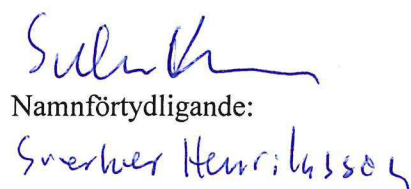 Namnförtydligande:
Sverker Henriksson